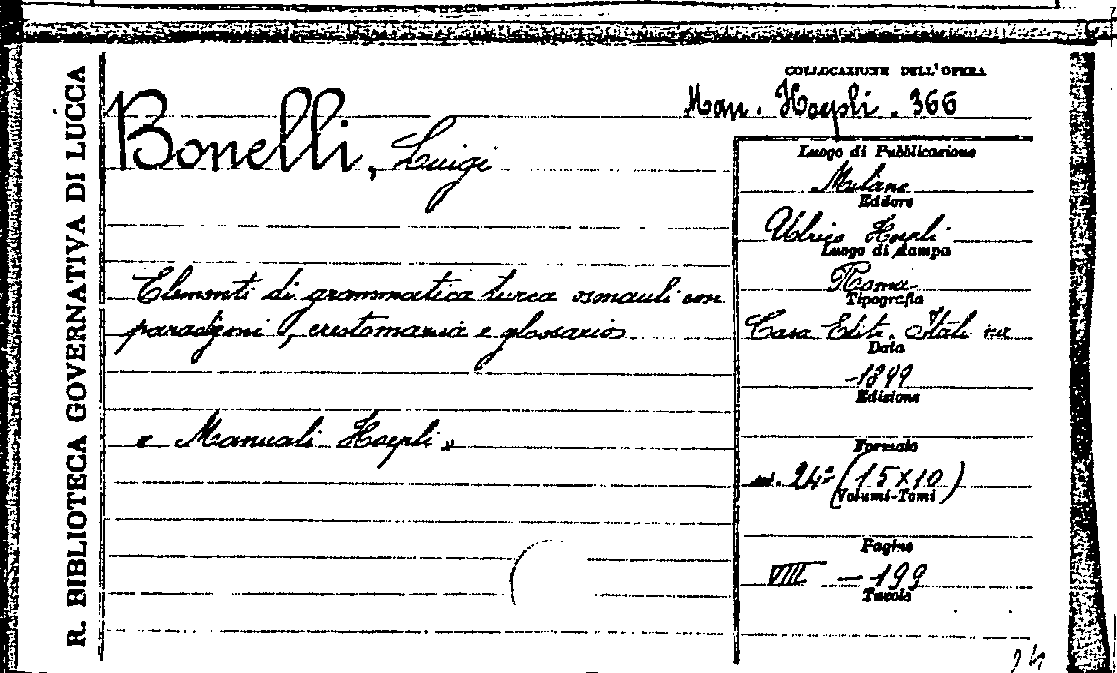 R. BIBLIOTECA GOVERNATIVA DI LUCCA
COLLOCAZIONE DELL'OPERA
Man. Hoepli. 366
Bonelli, Luigi
Elementi di grammatica turca osmanli con
paradigmi, crestomazia e glossario
« Manuali Hoepli »
Luogo di Pubblicazione
Milano
Editore
Ulrico Hoepli
Luogo di stampa
Roma
Tipografia
Casa Edit. Itali
Data
-1899
Edizione
Formato
24° (15x10)
Volumi-Tomi
Pagine
VIII - 199
Tavole